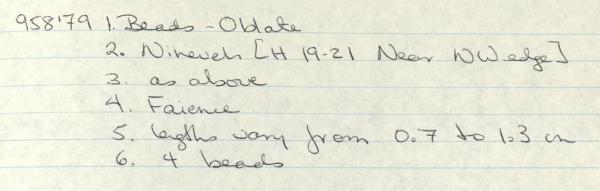 958'79 1. Beads - Oblate
2. Nineveh [H 19-21 Near NW edge]
3. as above
4. Faience
5. lengths vary from 0.7 to 1.3 cm
6. 4 beads